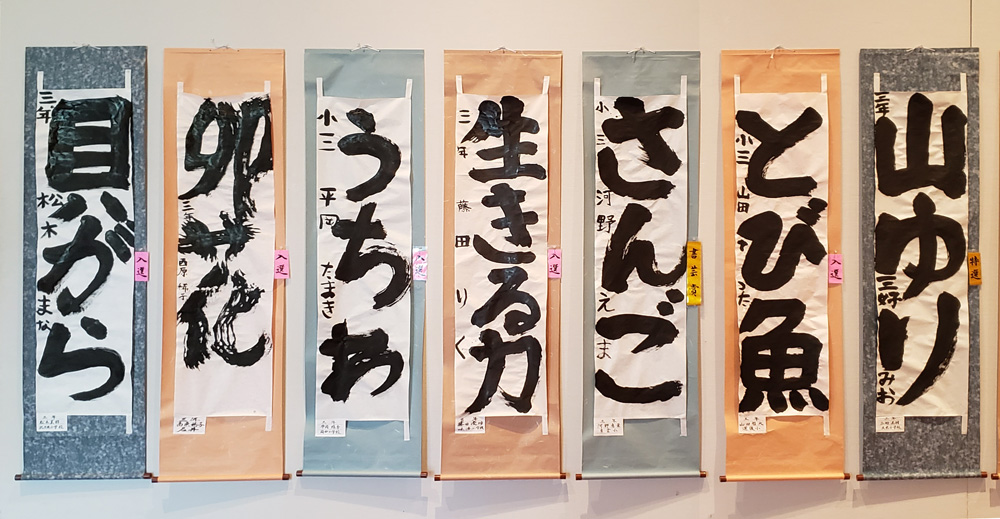 貝がら
三年 松木 まな
入選
卯の花
三年
入選
うちわ
小三 平岡 たまき
入選
生きる力
三年 藤田 りく
入選
さんご
小三 河野 えま
書芸賞
とび魚
小三 山田
入選
山ゆり
三年 三好 みお
特選